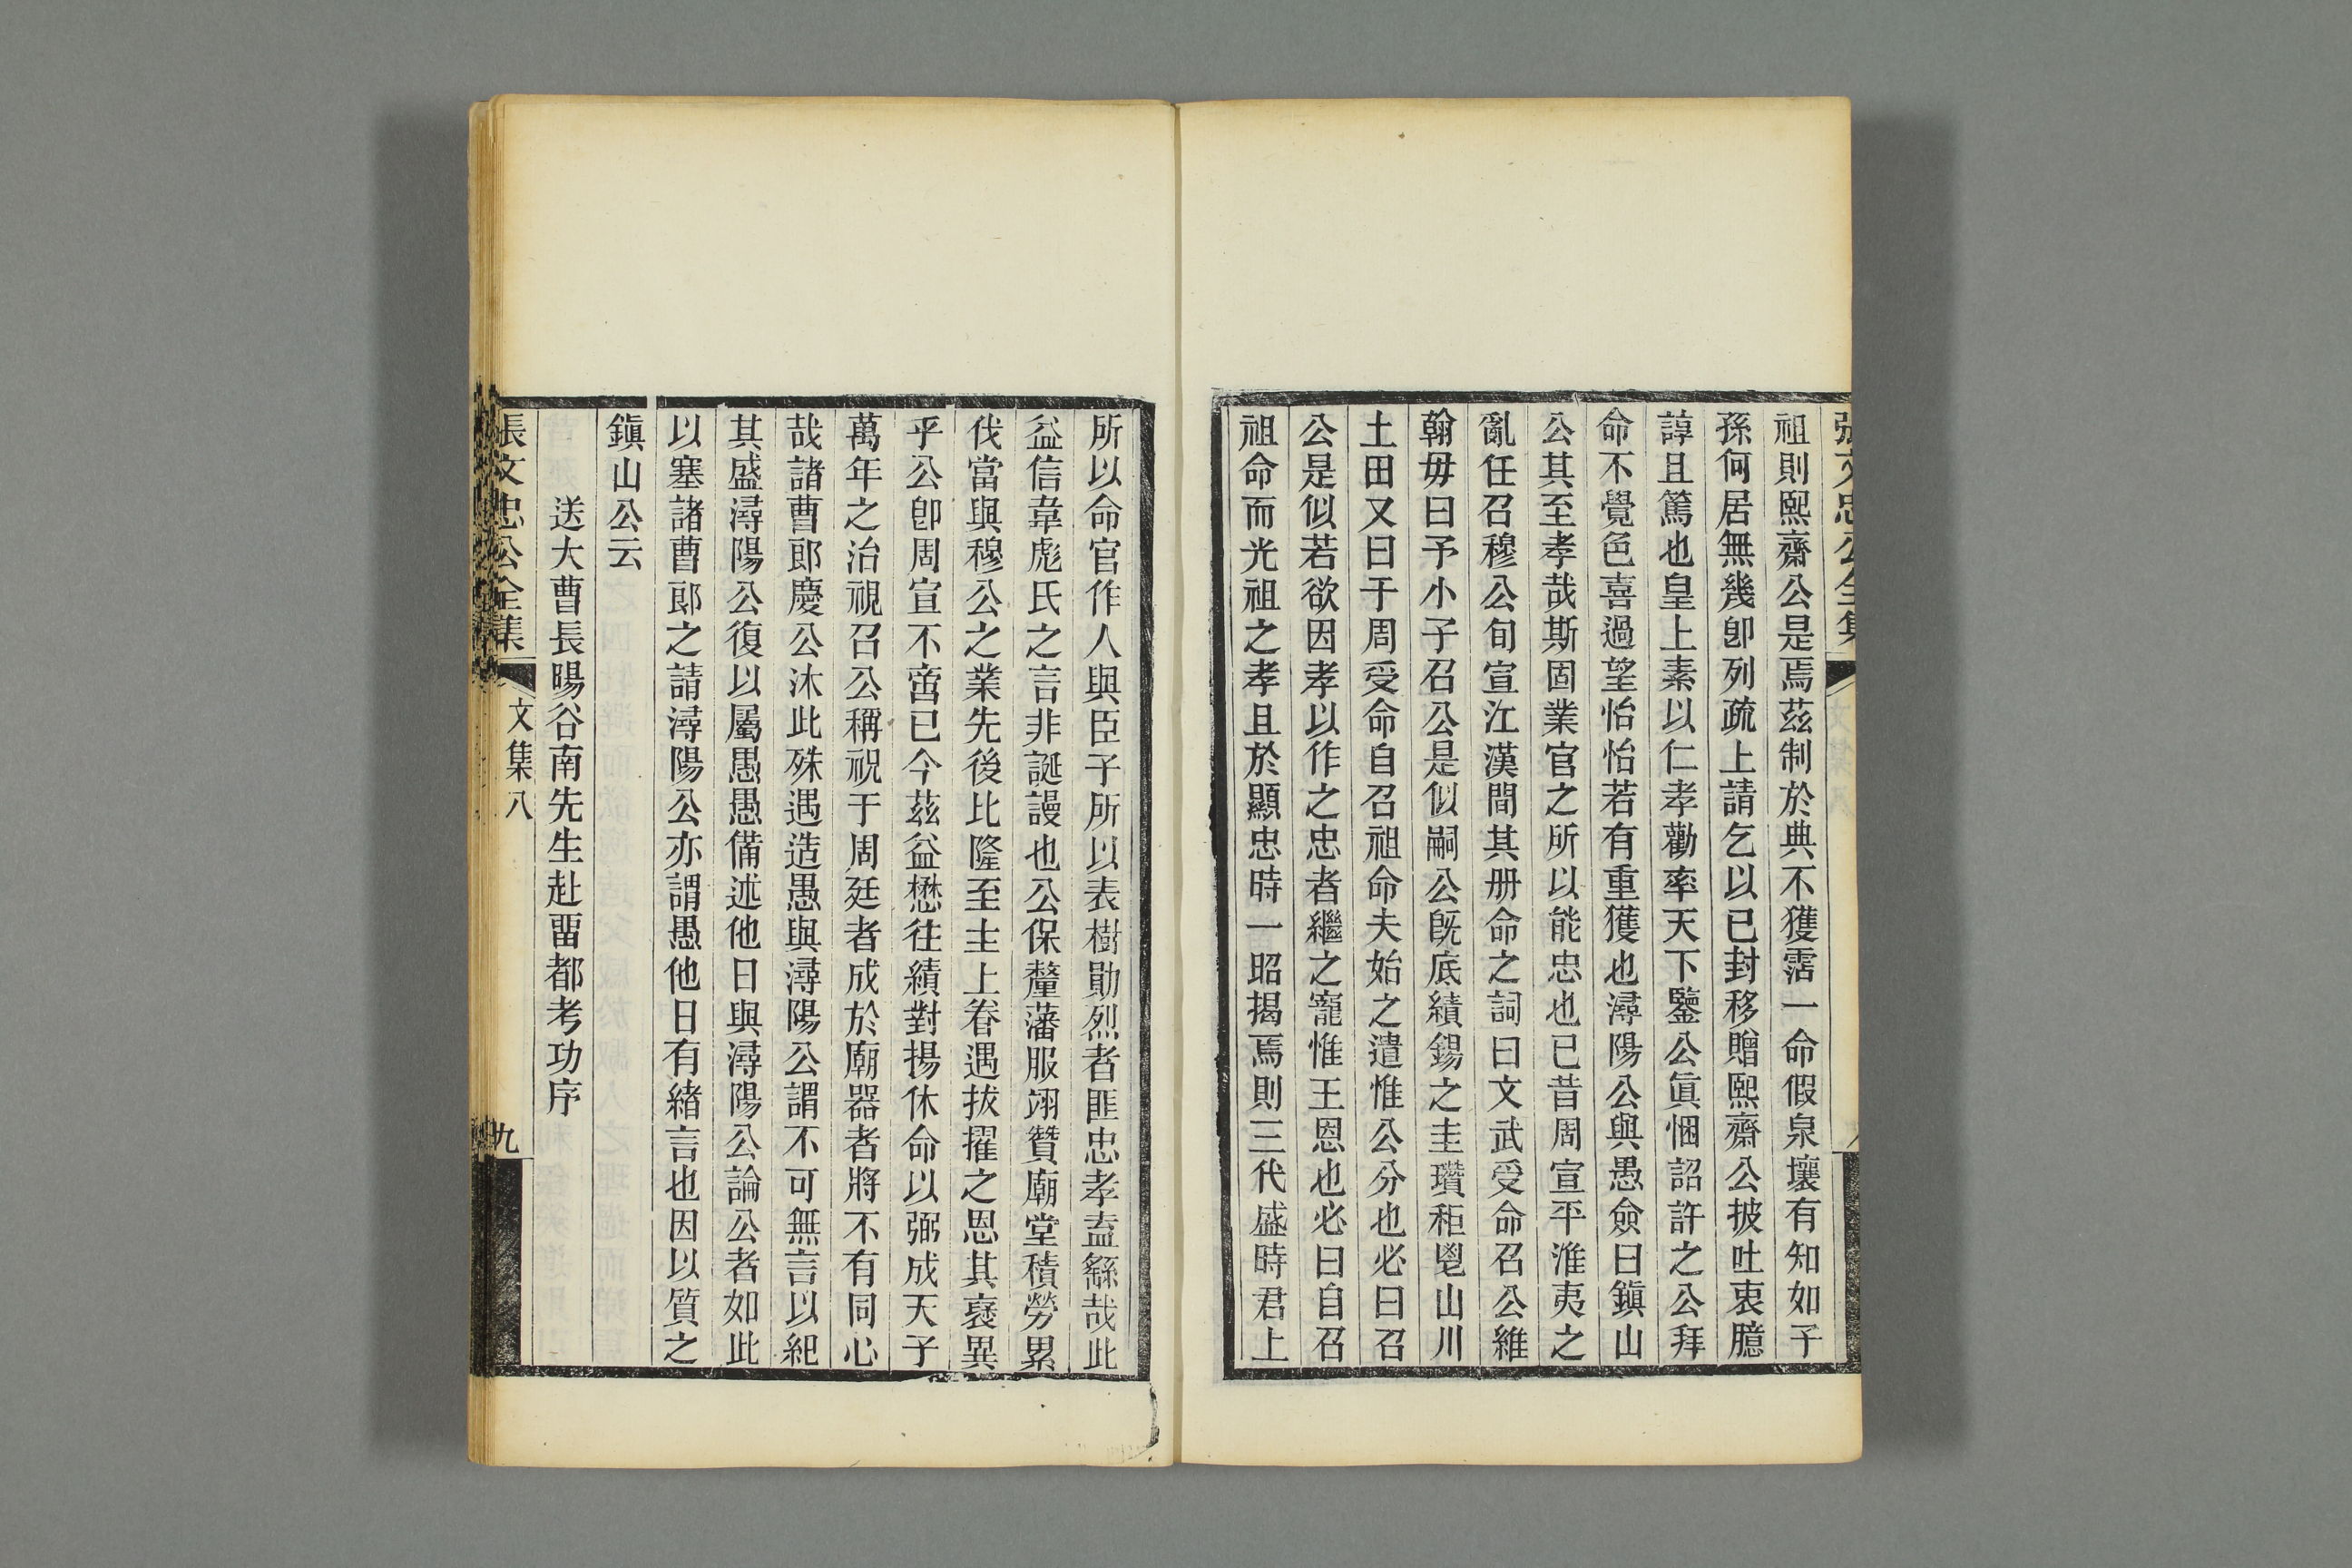 張文忠公全集
祖則熙齋公是焉茲制於典不獲霑一命假泉壤有知如子
孫何居無幾卽列疏上請乞以已封移贈熙齋公披吐衷臆
諄且篤也皇上素以仁孝勸率天下鑒公眞悃詔許之公拜
命不覺色喜過望怡怡若有重獲也潯陽公與愚僉曰鎭山
公其至孝哉斯固業官之所以能忠也已昔周宣平淮夷之
亂任召穆公旬宣江漢間其册命之詞曰文武受命召公維
翰毋曰予小子召公是似嗣公旣底績錫之圭瓚秬鬯山川
土田又曰于周受命自召祖命夫始之遣惟公分也必曰召
公是似若欲因孝以作之忠者繼之寵惟王恩也必曰自召
祖命而光祖之孝且於顯忠時一昭揭焉則三代盛時君上
所以命官作人與臣子所以表樹勛烈者匪忠孝盍繇哉此
益信韋彪氏之言非誕謾也公保釐藩服翊贊廟堂積勞累
伐當與穆公之業先後比隆至主上眷遇拔擢之恩其褒異
乎公卽周宣不啻已今茲益懋往績對揚休命以弼成天子
萬年之治視召公稱祝于周廷者成於廟器者將不有同心
哉諸曹郎慶公沐此殊遇造愚與潯陽公謂不可無言以紀
其盛潯陽公復以屬愚愚備述他日與潯陽公論公者如此
以塞諸曹郎之請潯陽公亦謂愚他日有緒言也因以質之
鎭山公云
送大曹長暘谷南先生赴畱都考功序
張文忠公全集
文集八
九